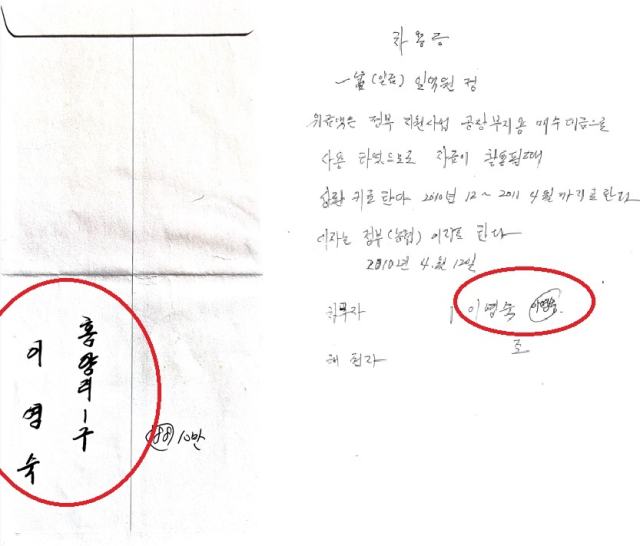 홍양리 1구
이영숙
10만
차용증
一金(일금) 일억원 정
위금액은 정부 지원사업 공장부지용 매수 대금으로
사용 하였으므로 자금이
2010년 12 ~ 2011 4월 까지로 한다
이자는 정부(농협) 이자로 한다
2010년 4월 12일
채무자 이영숙 이영숙